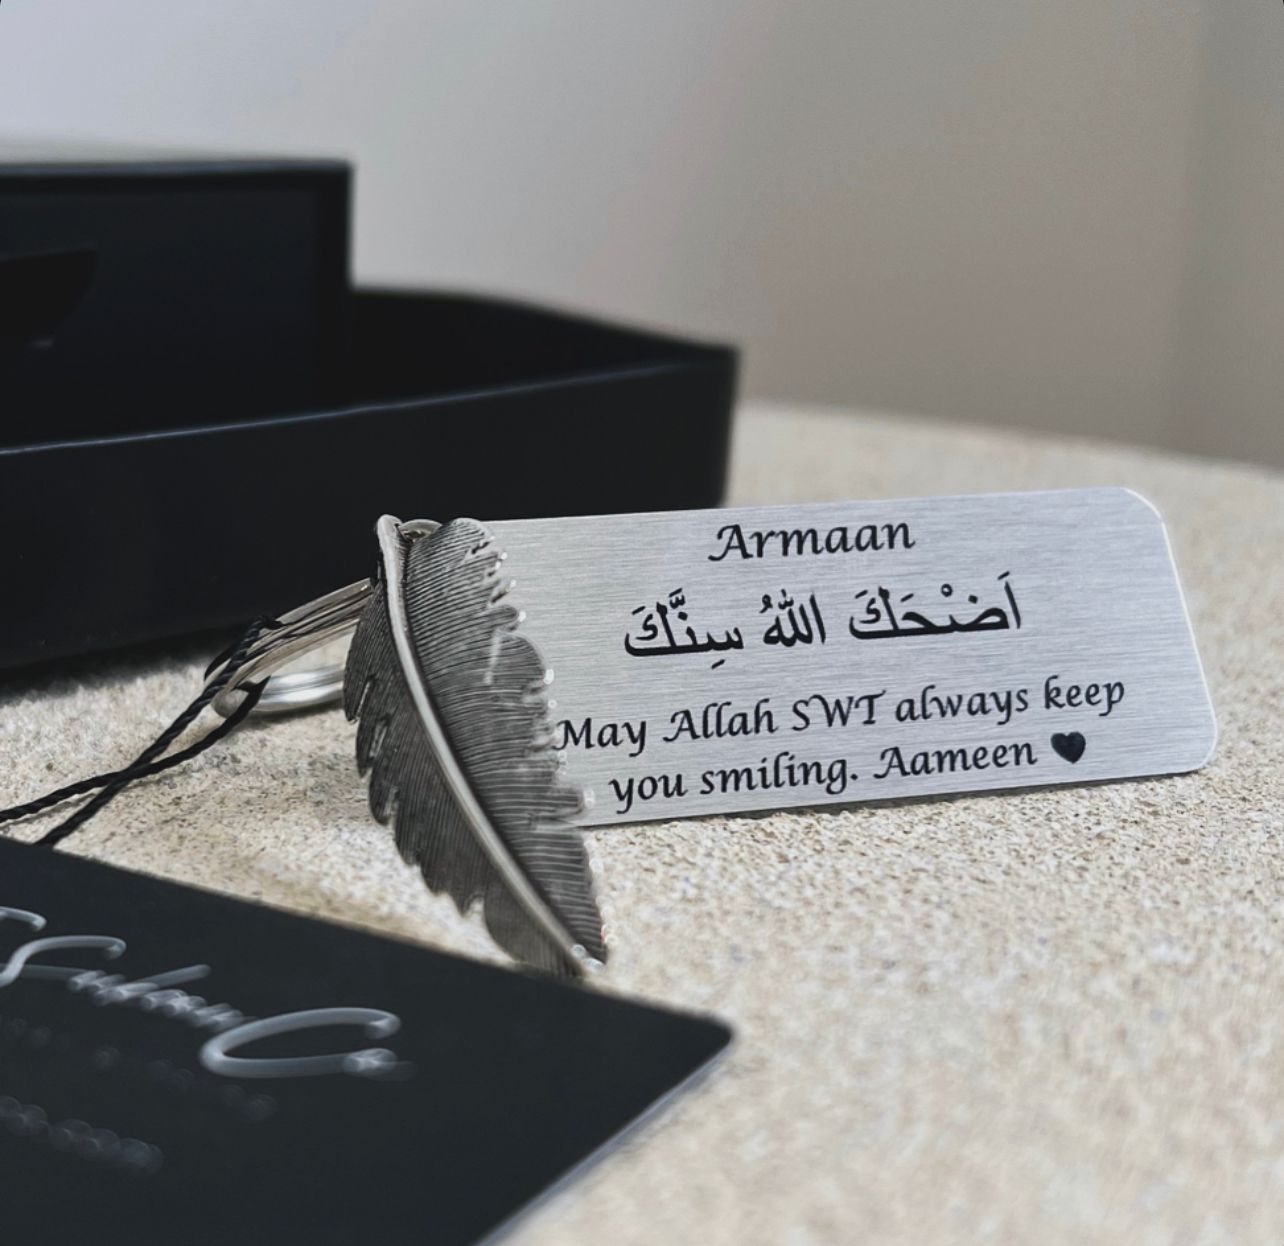 Armaan
اَضْحَكَ اللهُ سِنَّكَ
May Allah SWT always keep
you smiling. Aameen ♥